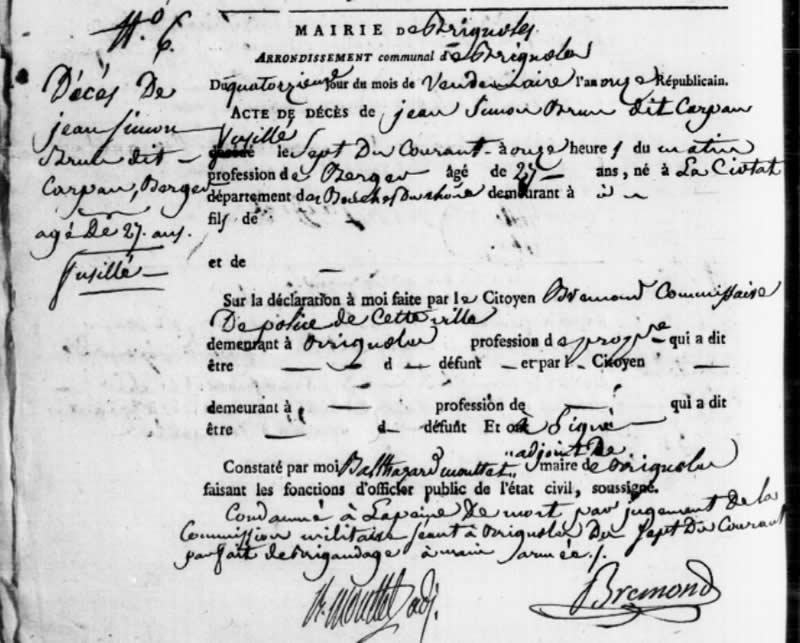 N.º 6.
MAIRIE DE Brignoles
ARRONDISSEMENT communal d e Brignoles
Du quatorzieme Jour du mois de Vendemiaire l'an onze Républicain.
Décés De
jean Simon
Brun dit
Carpan, Berger
agé De 27. ans.
fusillé
ACTE DE DÉCÈS de jean Simon Brun dit Carpan
fusillé
le Sept Du Courant à onze heures du matin
profession de Berger âgé de 27 ans, né à La Ciotat
département des Bouches Du rhône demeurant à
fils de
et de
Sur la déclaration à moi faite par le Citoyen Bremond Commissaire
De police de Cette ville
demeurant à Brignoles profession de qui a dit
être d défunt et par l Citoyen
demeurant à profession de qui a dit
être d défunt Et ont Signé
adjoint De
Constaté par moi Balthazard mouttet maire de Brignoles
faisant les fonctions d'officier public de l'état civil, soussigné.
Condamné à La peine De mort par jugement de la
Commission militaire Séant à Brignoles Du Sept Du Courant
par fait de Brigandage à main armée.
B. mouttet adj. Bremond